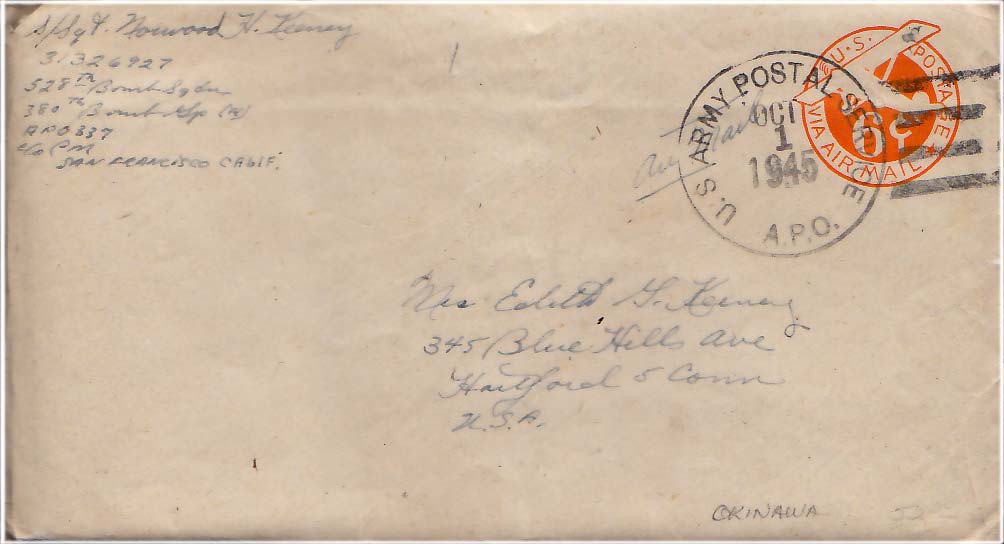 S/Sgt. Norwood H. Keeney
31326927
528th Bomb Sqdn
380th Bomb Gp (H)
APO 337
c/o PM
SAN FRANCISCO CALIF.
Air Mail
U.S. ARMY POSTAL SERVICE
OCT
1
1945
A.P.O.
U.S. POSTAGE
6¢
VIA AIR MAIL
Mrs Edith G. Keeney
345 Blue Hills Ave
Hartford 5 Conn
U.S.A.
OKINAWA